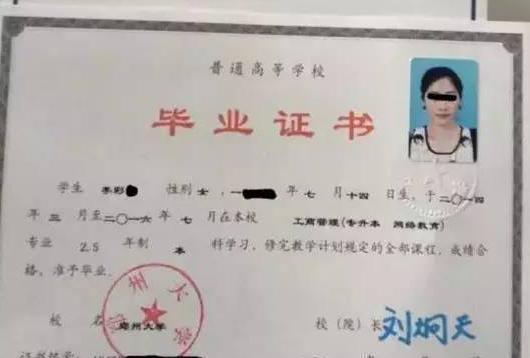 普通高等学校
毕业证书
学生 李彩 性别 女，一 年 七 月 十四 日生，于 二〇一四
年 三 月至 二〇一六 年 七 月在本校 工商管理（专升本 网络教育）
专业 2.5 年制 本 科学习，修完教学计划规定的全部课程，成绩合
格，准予毕业。
校 名 郑州大学 校（院）长 刘炯天